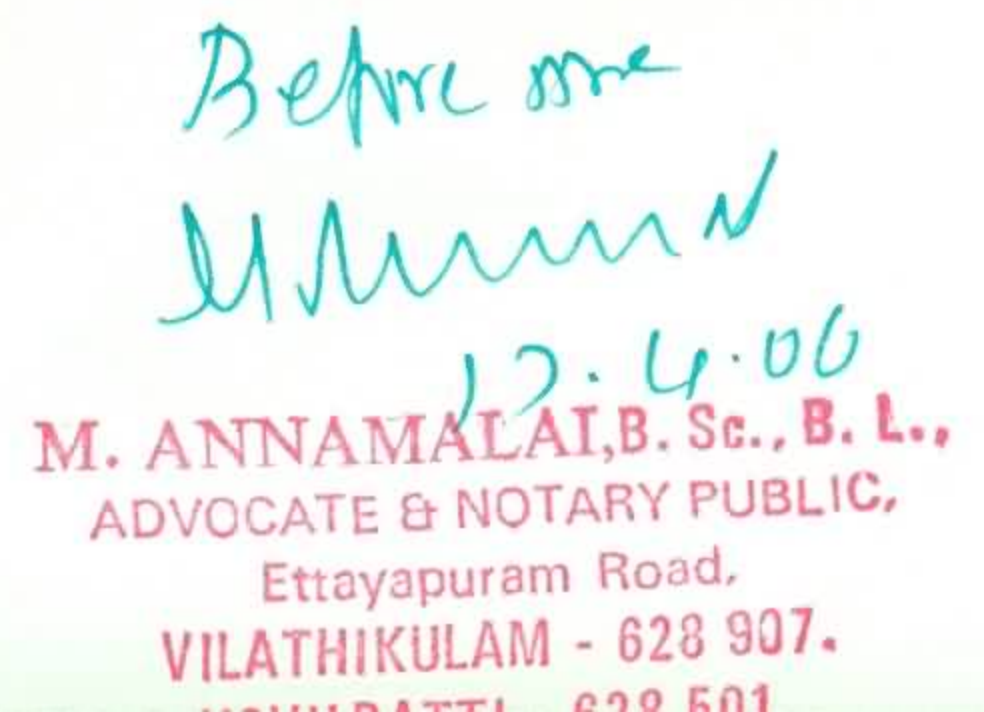 Before me
M. ANNAMALAI, B. Sc., B. L.,
ADVOCATE & NOTARY PUBLIC,
Ettayapuram Road,
VILATHIKULAM - 628 907.
628 501